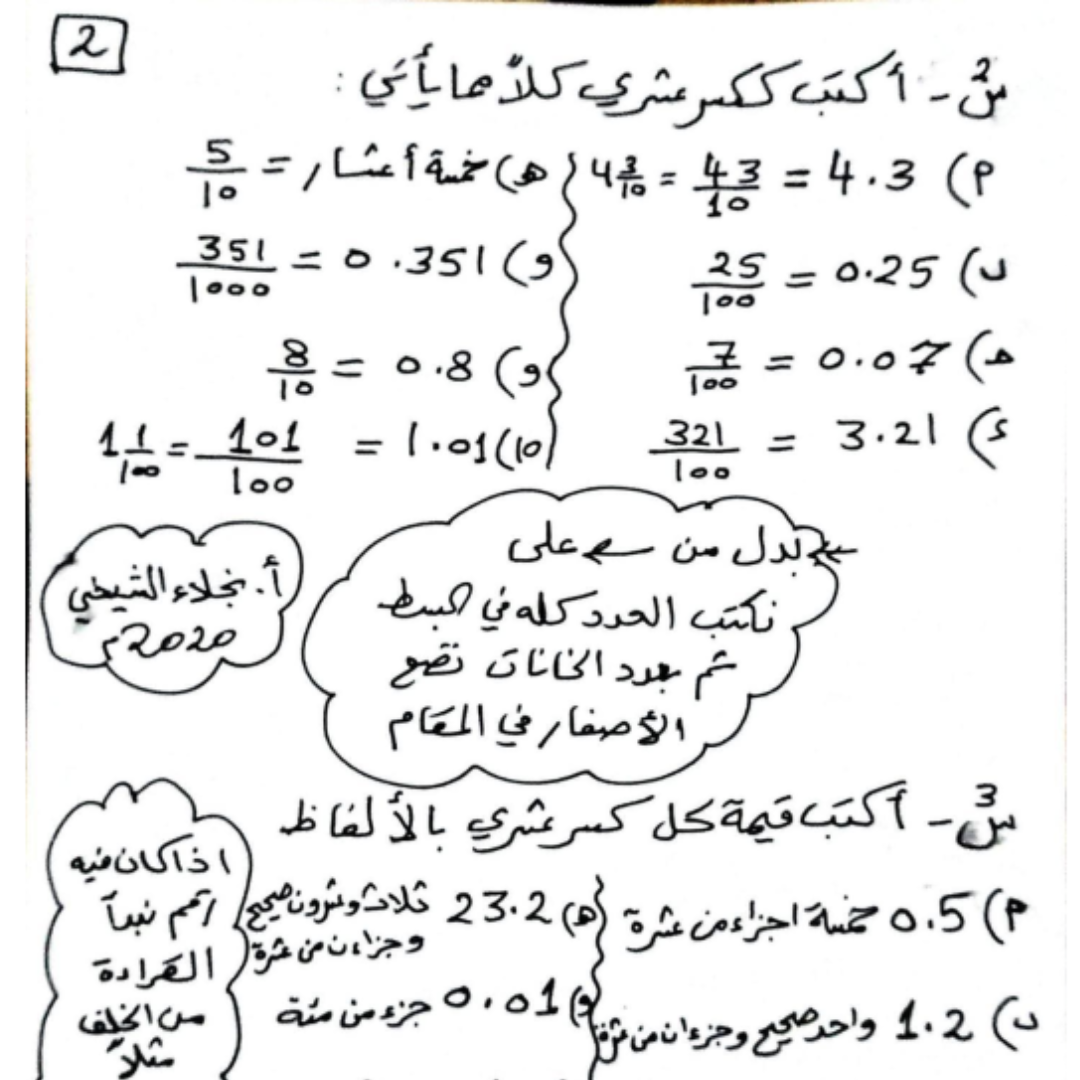 2
س2- أكتب ككسر عشري كلاً مما يأتي :
م) 4.3 = 43/10 = 4 3/10
ب) 0.25 = 25/100
هـ) 0.07 = 7/100
ء) 3.21 = 321/100
هـ) خمسة أعشار = 5/10
و) 0.351 = 351/1000
و) 0.8 = 8/10
10) 1.01 = 101/100 = 1 1/100
بدل من على
نكتب العدد كله في البسط
ثم بعدد الخانات نضع
الأصفار في المقام
أ. نجلاء الشيخي
2020م
س3- أكتب قيمة كل كسر عشري بالألفاظ
م) 0.5 خمسة اجزاء من عشرة
ب) 1.2 واحد صحيح وجزءان من عشرة
هـ) 23.2 ثلاث وعشرون صحيح
وجزءان من عشرة
و) 0.01 جزء من مئة
اذا كان فيه
رقم نبدأ
القراءة
من الخلف
مثلاً